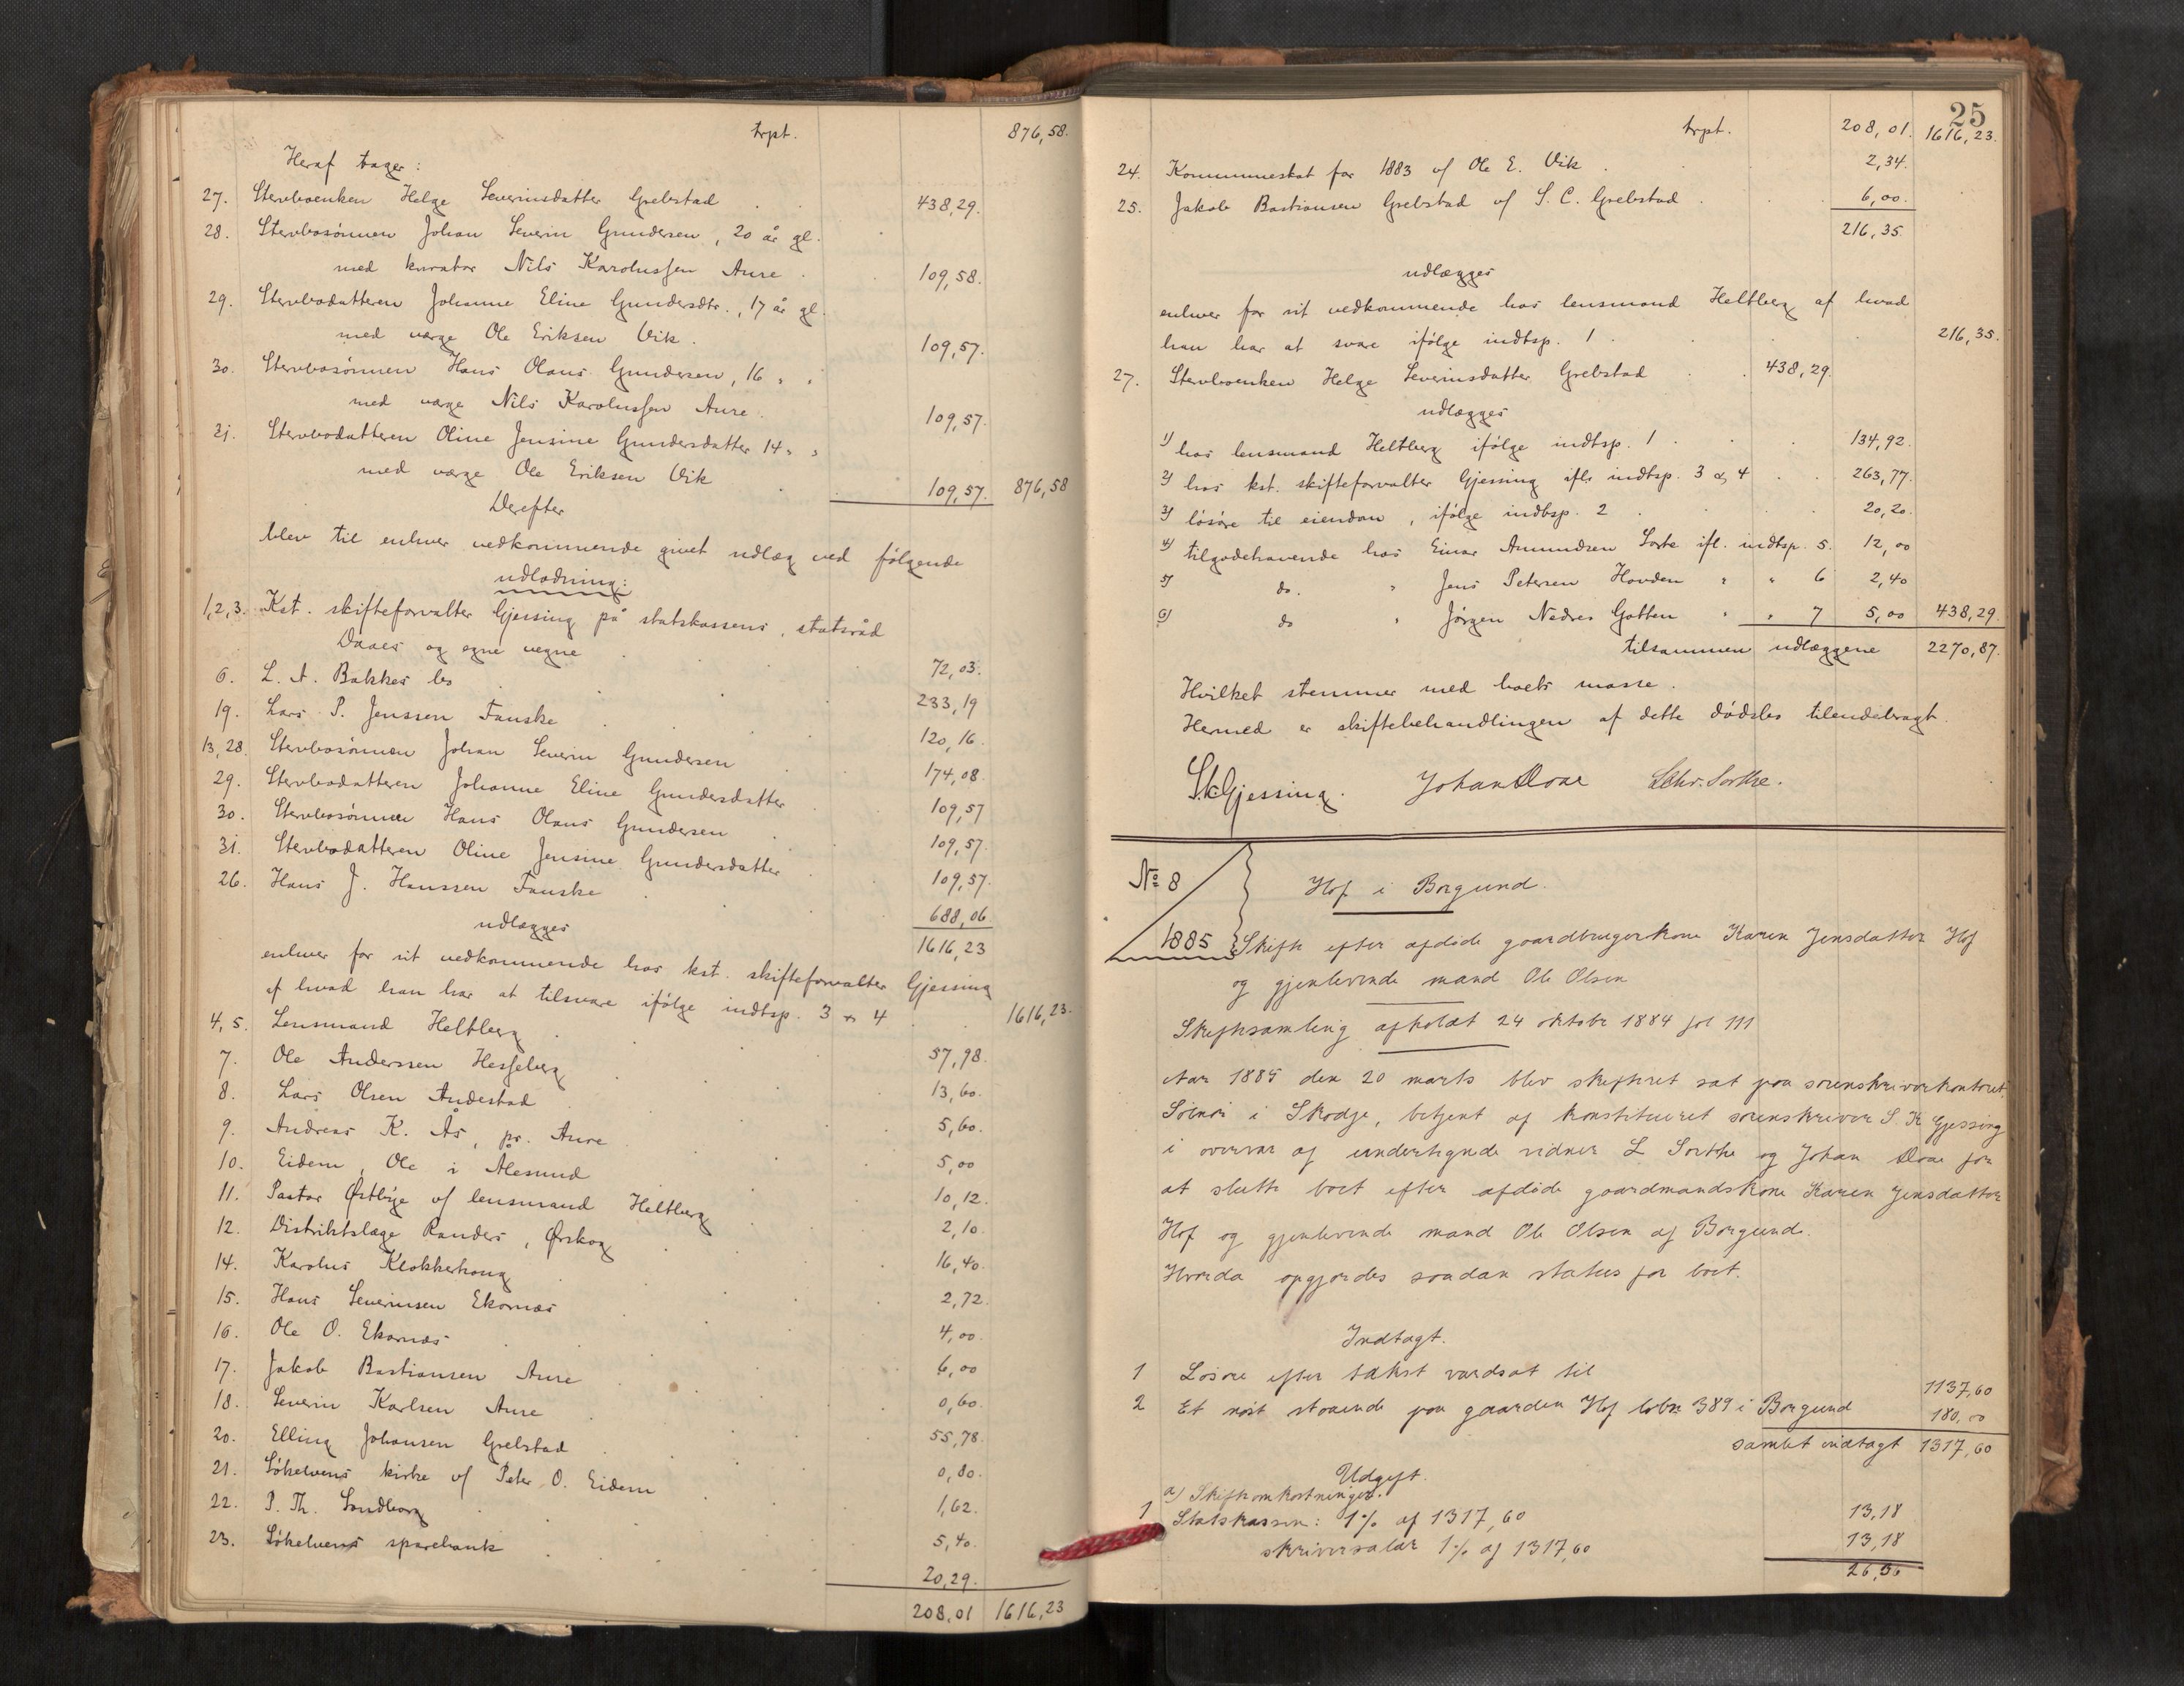 trpt. 876,58.
Heraf tager:
27. Stervboenken Helge Severinsdatter Grebstad 438,29.
28. Stervbosönnen Johan Severin Gundersen, 20 år gl.
med kurator Nils Karolussen Aure 109,58.
29. Stervbodatteren Johanne Eline Gundersdtr., 17 år gl.
med værge Ole Eriksen Vik. 109,57.
30. Stervbosönnen Hans Olaus Gundersen, 16 " "
med værge Nils Karolussen Aure. 109,57.
31. Stervbodatteren Oline Jensine Gundersdatter 14 " "
med værge Ole Eriksen Vik 109,57. 876,58
Derefter
blev til enhver vedkommende givet udlæg ved fölgende
udlodning:
1,2,3. Kst. skifteforvalter Gjessing på statskassens, statsråd
Daaes og egne vegne 72,03.
6. L. A. Bakkes bo 233,19
19. Lars P. Jenssen Fauske 120,16.
13, 28. Stervbosönnen Johan Severin Gundersen 174,08.
29. Stervbodatteren Johanne Eline Gundersdatter 109,57
30. Stervbosönnen Hans Olaus Gundersen 109,57.
31. Stervbodatteren Oline Jensine Gundersdatter 109,57.
26. Hans J. Hanssen Fauske 688,06
udlægges 1616,23
enhver for sit vedkommende hos kst. skifteforvalter Gjessing
af hvad han har at tilsvare ifölge indtsp. 3 & 4 1616,23.
4, 5. Lensmand Heltberg 57,98.
7. Ole Anderssen Hesseberg 13,60.
8. Lars Olsen Andestad 5,60.
9. Andreas K. Ås, pr. Aure 5,00
10. Eidem, Ole i Ålesund 10,12.
11. Pastor Østbye v/ lensmand Heltberg 2,10.
12. Distriktslæge Randers, Ørskog 16,40.
14. Karolus Klokkerhoug 2,72.
15. Hans Severinsen Ekornæs 4,00.
16. Ole O. Ekornæs 6,00
17. Jakob Bastiansen Aure 0,60.
18. Severin Karlsen Aure 55,78.
20. Elling Johansen Grebstad 0,80.
21. Sökelvens kirke v/ Peter O. Eidem 1,62.
22. P. Th. Sandborg 5,40.
23. Sökelvens sparebank 20,29.
208,01 1616,23
25
trpt. 208,01. 1616,23.
24. Kommuneskat for 1883 v/ Ole E. Vik 2,34.
25. Jakob Bastiansen Grebstad v/ S. C. Grebstad 6,00.
216,35
udlægges
enhver for sit vedkommende hos lensmand Heltberg af hvad
han har at svare ifölge indtsp. 1 216,35.
27. Stervboenken Helge Severinsdatter Grebstad 438,29.
udlægges
1) hos lensmand Heltberg ifölge indtsp. 1 134,92.
2) hos kst. skifteforvalter Gjessing ifl. indtsp. 3 & 4 263,77.
3) lösöre til eiendom, ifölge indtsp. 2 20,20.
4) tilgodehavende hos Einar Amundsen Sorte ifl. indtsp. 5. 12,00
5) do. " Jens Petersen Hovden " " 6 2,40
6) do " Jørgen Nedres Gotten " " 7 5,00 438,29.
tilsammen udlæggene 2270,87.
Hvilket stemmer med boets masse.
Hermed er skiftebehandlingen af dette dödsbo tilendebragt.
S.K. Gjessing. Johan Aloae LChr. Sorthe.
No 8
1885
Hof i Borgund.
Skifte efter afdöde gaardbrugerkone Karen Jensdatter Hof
og gjenlevende mand Ole Olsen
Skiftesamling afholdt 24 oktobr 1884 fol 111
Aar 1885 den 20 marts blev skifteret sat paa sorenskriverkontoret,
Sölnör i Skodje, betjent af konstitueret sorenskriver S. K Gjessing
i overvær af undertegnede vidner L Sorthe og Johan Aloae for
at slutte boet efter afdöde gaardmandskone Karen Jensdatter
Hof og gjenlevende mand Ole Olsen af Borgund.
Hvorda opgjordes saadan status for boet.
Indtægt.
1 Lösöre efter takst værdsat til 1137,60
2 Et nöst staaende paa gaarden Hof löbn 389 i Borgund 180,00
samlet indtægt 1317,60
Udgift.
a) Skifteomkostninger.
1 Statskassen: 1% af 1317,60 13,18
skriversalær 1% af 1317,60 13,18
26,36